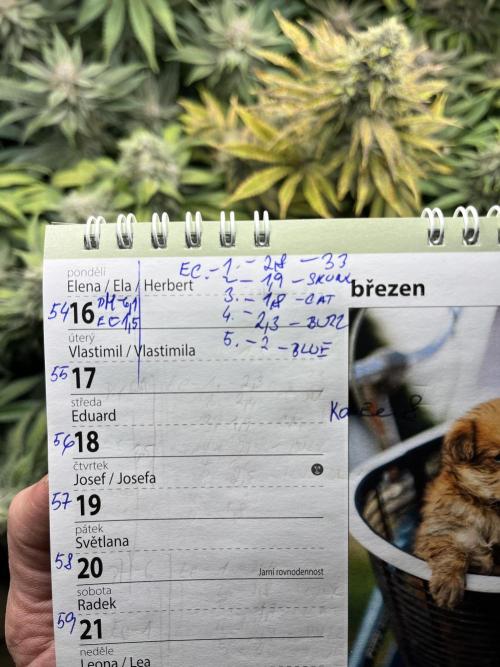 pondělí
EC.-1.- 2,8 - 33
Elena / Ela / Herbert
2 - 1,9 - SKUNK
březen
54 16 PH-6,1
EC 1,5
3. - 1,8 - CAT
4. - 2,3 - BUZZ
úterý
5. - 2 - BLUE
Vlastimil / Vlastimila
55 17
středa
Eduard
8
56 18
čtvrtek
Josef / Josefa
57 19
pátek
Světlana
58 20
Jarní rovnodennost
sobota
Radek
59 21
neděle
Leona / Lea